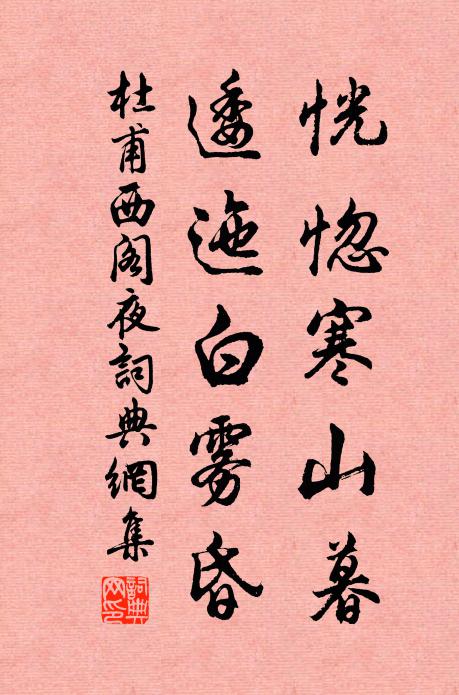 恍惚寒山暮
逶迤白雾昏
杜甫西阁夜詞典網集
詞典网印